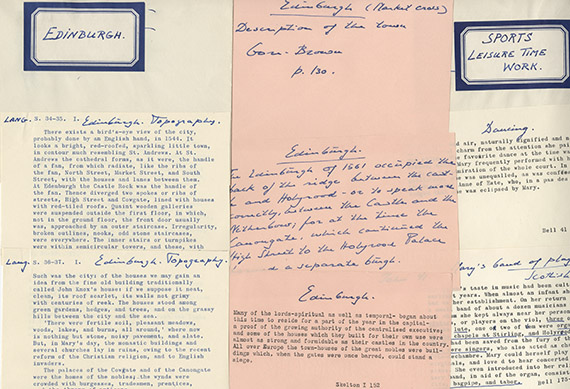 EDINBURGH.
LANG. S. 34-35. I. Edinburgh. Topography.
There exists a bird's-eye view of the city,
probably done by an English hand, in 1544. It
looks a bright, red-roofed, sparkling little town,
in contour much resembling St. Andrews. At St.
Andrews the cathedral forms, as it were, the handle
of a fan, from which radiate, like the ribs of
the fan, North Street, Market Street, and South
Street, with the houses and lanes between them.
At Edinburgh the Castle Rock was the handle of
the fan. Thence diverged two spokes or ribs of
streets, High Street and Cowgate, lined with houses
with red-tiled roofs. Quaint wooden galleries
were suspended outside the first floor, in which,
not in the ground floor, the front door usually
was, approached by an outer staircase. Irregularity,
broken outlines, nooks, odd stone staircases,
were everywhere. The inner stairs or turnpikes
were within semicircular towers, and these, with
Lang. S. 36-37. I. Edinburgh. Topography.
Such was the city: of the houses we may gain an
idea from the fine old building traditionally
called John Knox's house: if we suppose it neat,
clean, its roof scarlet, its walls not grimy
with centuries of reek. The houses stood among
green gardens, hedges, and trees, and on the grassy
hills between the city and the sea.
"There were fertile soil, pleasant meadows,
woods, lakes, and burns, all around," where now
is nothing but stone, noisy pavement, and slate.
But, in Mary's day, the monastic buildings and
several churches lay in ruins, owing to the recent
reform of the Christian religion, and to English
invaders.
The palaces of the Cowgate and of the Canongate
were the homes of the nobles, the wynds were
crowded with burgesses, tradesmen, prentices,
Edinburgh (Market cross)
Description of the town
Gor. Brown
p. 130.
Edinburgh.
In Edinburgh of 1661 occupied the
back of the ridge between the cast-
and Holyrood - or to speak more
correctly, between the Castle and the
Netherbow, for at the time the
Canongate, which continued the
High Street to the Holyrood Palace
a separate burgh.
Edinburgh.
Many of the lords-spiritual as well as temporal- began about
this time to reside for a part of the year in the capital-
a proof of the growing authority of the centralised executive;
and some of the houses which they built for their own use were
almost as strong and formidable as their castles in the country.
All over Europe the town-houses of the great nobles were buil-
dings which, when the gates were once barred, could stand a
siege.
Skelton I 152
SPORTS
LEISURE TIME
WORK.
Dancing.
d air, naturally dignified and
charm from the attention she pai
e favourite dance at the time wa
Mary frequently performed with h
miration of the whole court. In
was unequalled, as was confess
inne of Este, who, in a pas des
was eclipsed by Mary.
Bell 41
Mary's band of play
Scottish
's taste in music had been culti
t years. When almost an infant sh
her establishment. On her return
band of about a dozen musicians
om she kept always near her person
, or players on the viol, three
lute, one or two of whom were
chapels at Stirling, and Holyrood
from the fury of the
, she also acted as cho
. Mary could herself play
, and loved to hear concerts
even introduced into her reli
and, in aid of the organ, consist
bagpipe, and tabor.
Bell 17